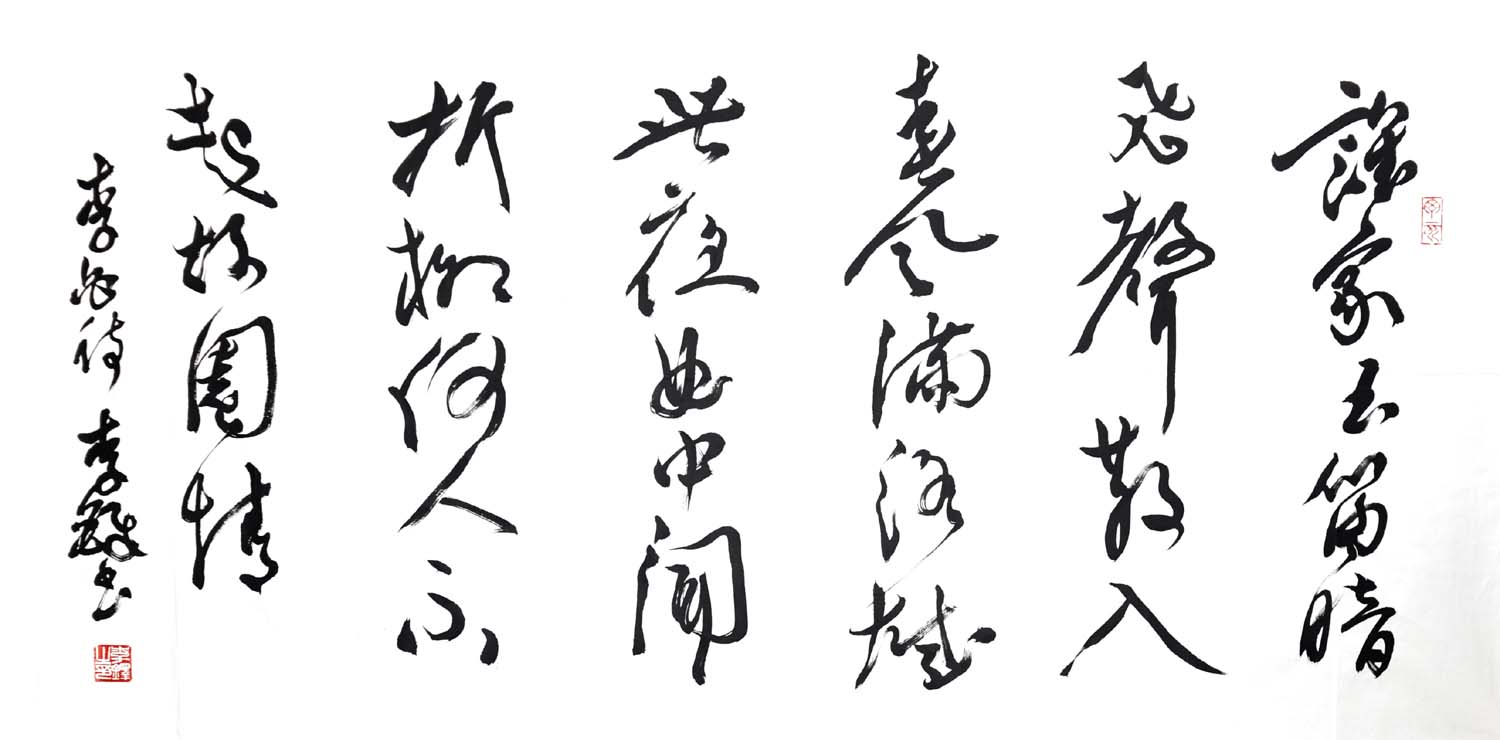 誰家玉笛暗
飛聲散入
春風滿洛城
此夜曲中聞
折柳何人不
起故園情
李白詩 李鐸書
李鐸之印